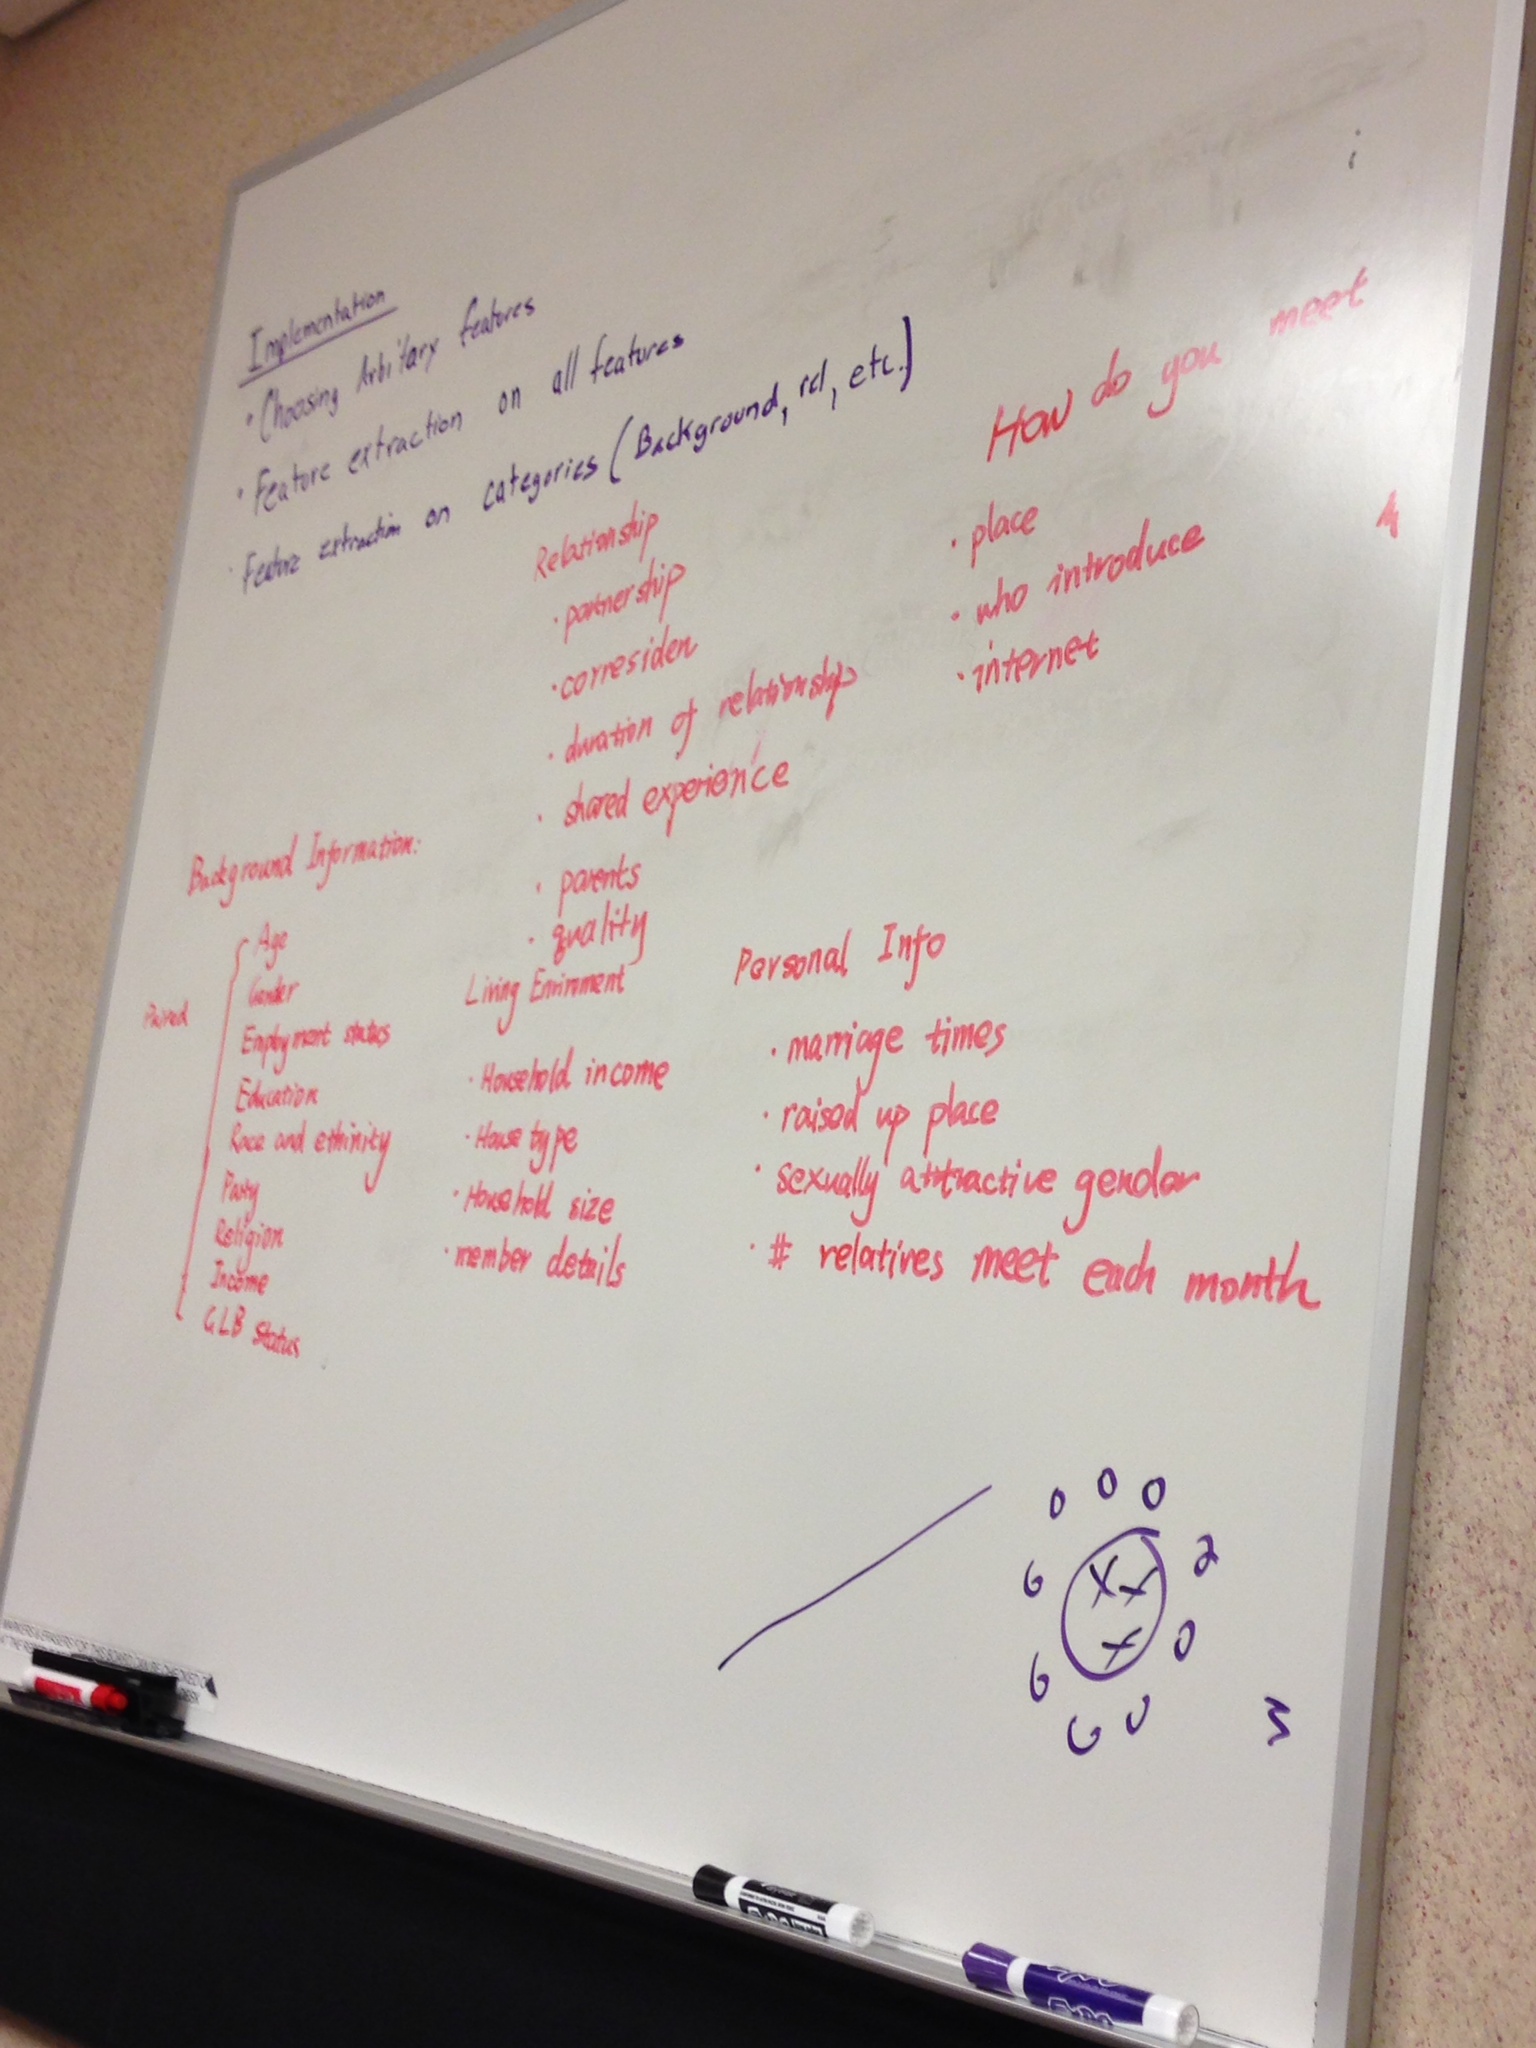 Implementation
• Choosing Arbitary features
• Feature extraction on all features
• Feature extraction on categories (Background, rel, etc.)
Relationship
• partnership
• corresiden
• duration of relationship
• shared experience
• parents
• quality
How do you meet
• place
• who introduce
• internet
Background Information:
Paired
Age
Gender
Employment status
Education
Race and ethinity
Party
Religion
Income
GLB status
Living Enviroment
• Household income
• House type
• Household size
• member details
Personal Info
• marriage times
• raised up place
• sexually attractive gender
• # relatives meet each month
EXPO
EXPO